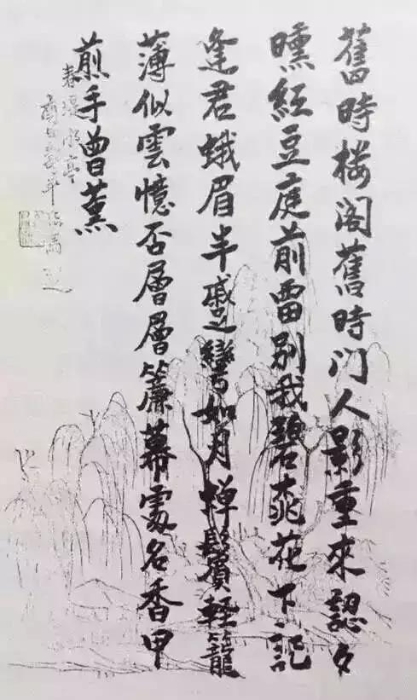 舊時楼閣舊時门人影重來認夕
曛紅豆庭前留别我碧桃花下記
逢君蛾眉半蹙彎如月蟬鬢輕籠
薄似雲憶否層層簾幕處名香甲
煎手曾薰